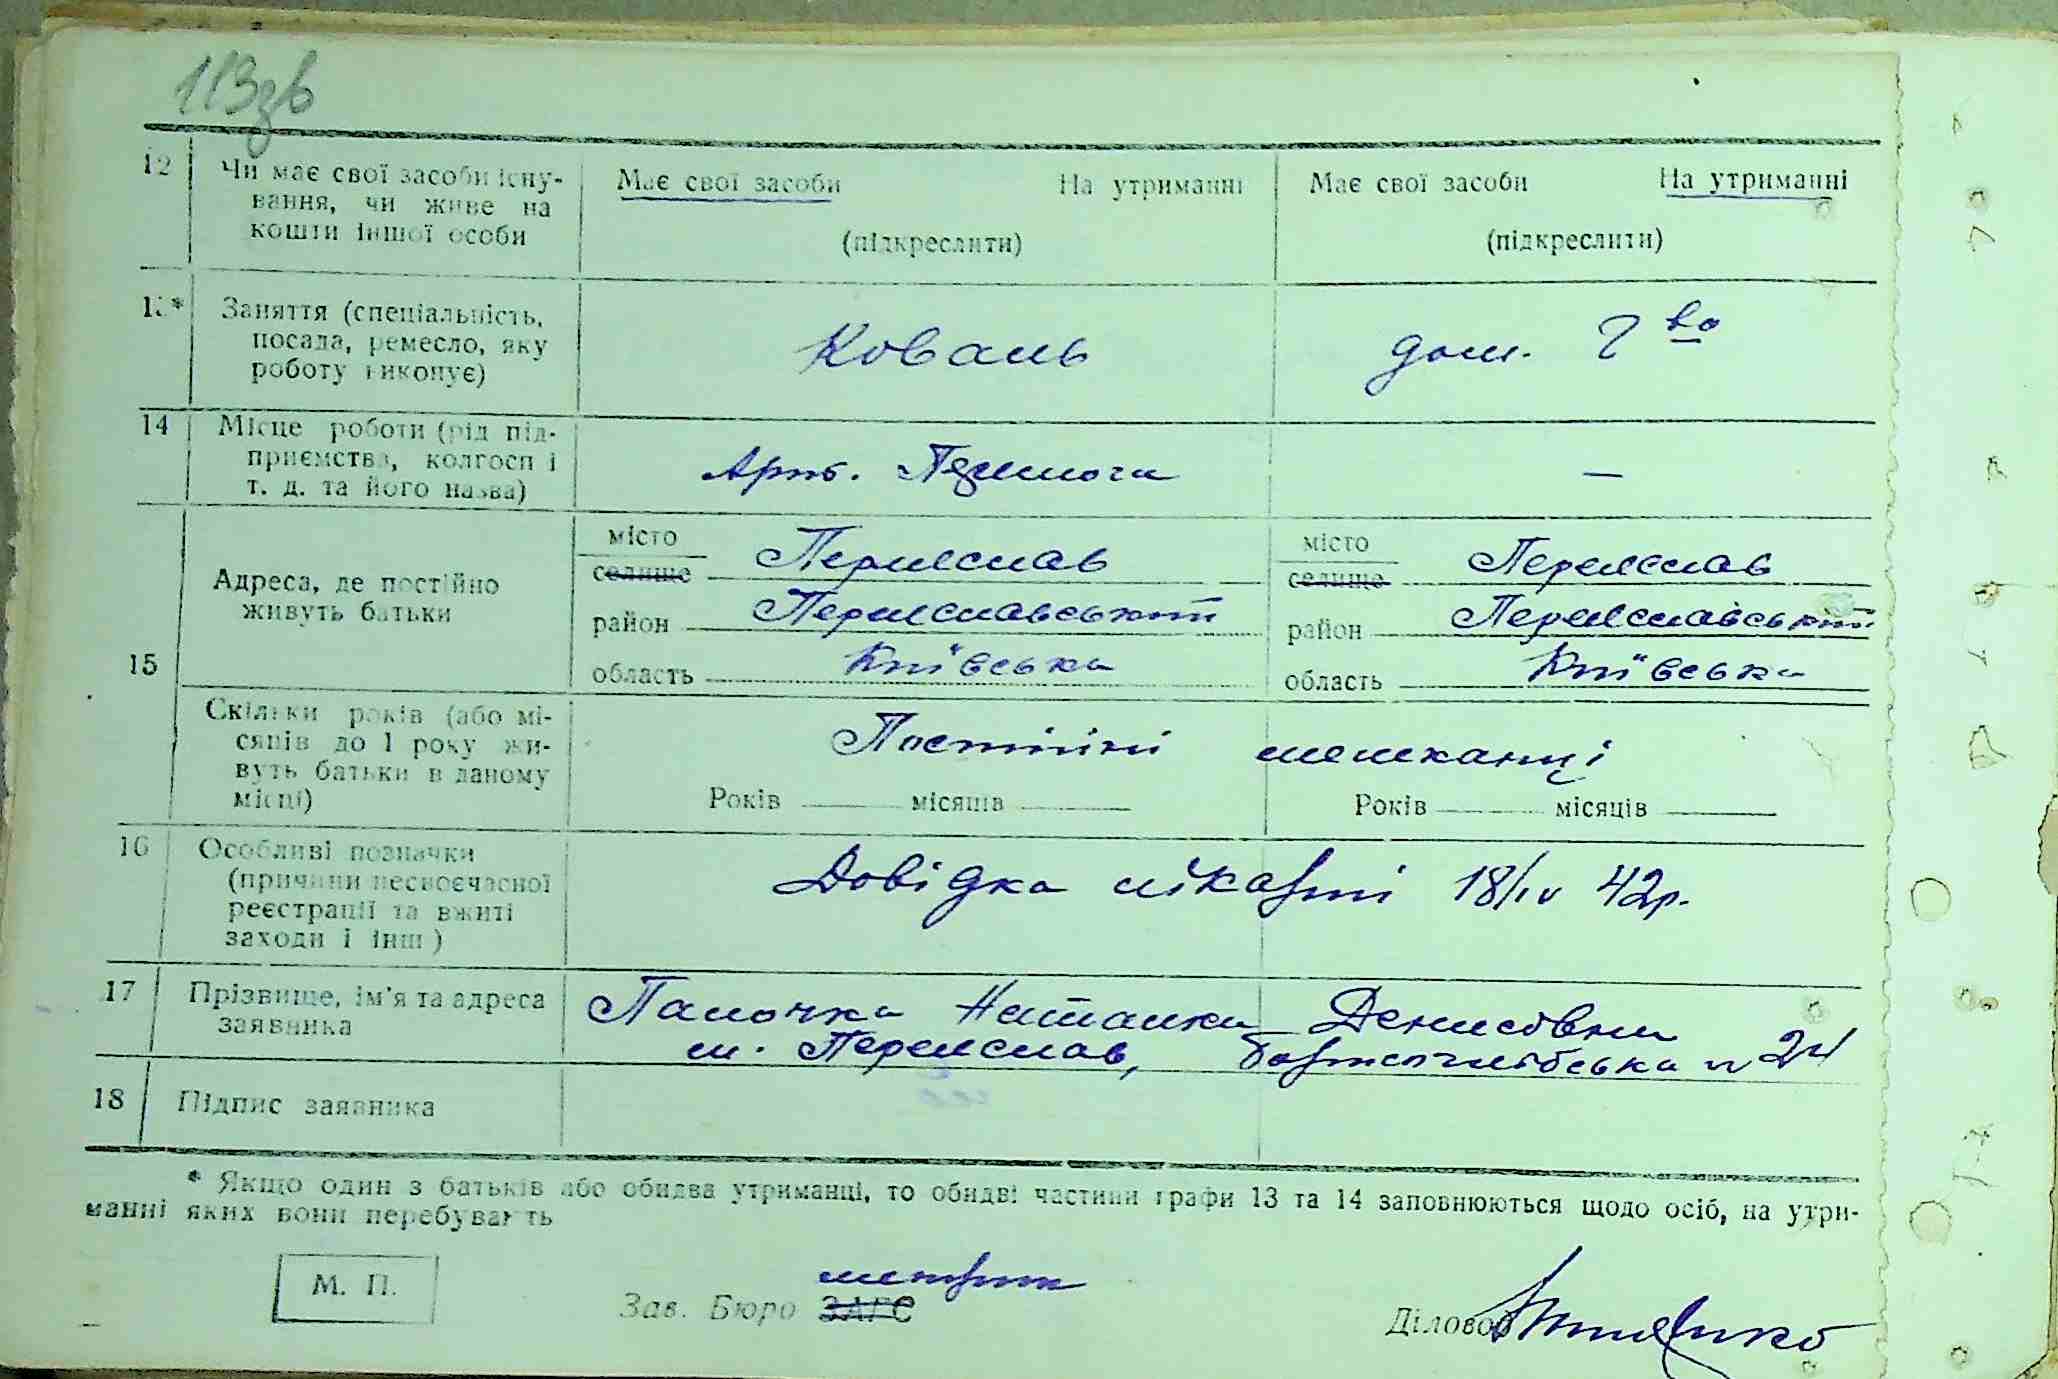 113зв
12 Чи має свої засоби існу- Має свої засоби На утриманні Має свої засоби На утриманні
вання, чи живе на
кошти іншої особи (підкреслити) (підкреслити)
13* Заняття (спеціальність,
посада, ремесло, яку Коваль дом. г-во
роботу виконує)
14 Місце роботи (рід під-
приємства, колгосп і Арт. Перемога —
т. д. та його назва)
15 Адреса, де постійно
живуть батьки
місто Переяслав місто Переяслав
селище селище
район Переяславський район Переяславський
область Київська область Київська
Скільки років (або мі-
сяців до 1 року жи- Постійні мешканці
вуть батьки в даному
місці) Років місяців Років місяців
16 Особливі позначки
(причини несвоєчасної Довідка лікарні 18/IV 42р.
реєстрації та вжиті
заходи і інш)
17 Прізвище, ім'я та адреса Палочка Наталка Денисовна
заявника м. Переяслав, № 24
18 Підпис заявника
* Якщо один з батьків або обидва утриманці, то обидві частини графи 13 та 14 заповнюються щодо осіб, на утри-
манні яких вони перебувають
М. П.
метрик
Зав. Бюро ЗАГС Діловод